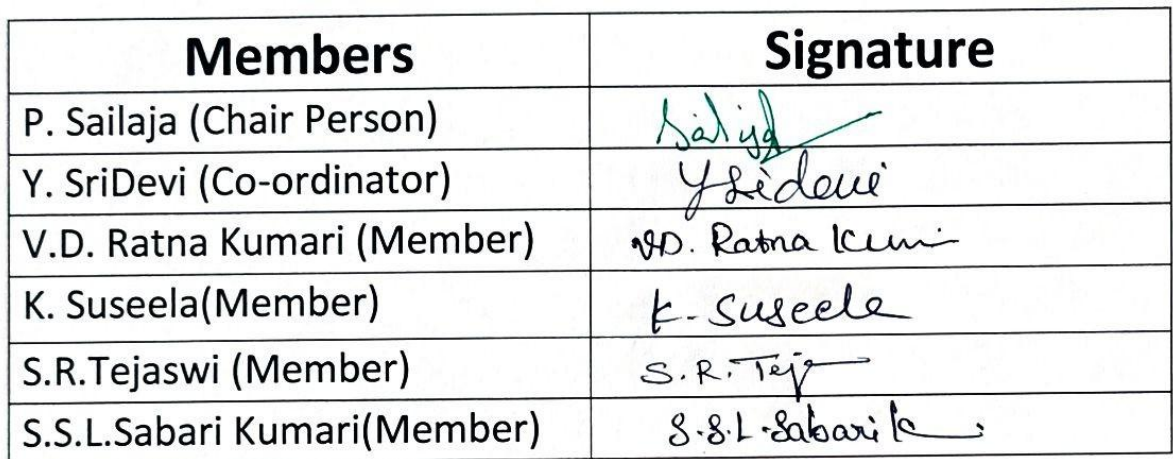 Members Signature
P. Sailaja (Chair Person) Sailaja
Y. SriDevi (Co-ordinator) Y Sridevi
V.D. Ratna Kumari (Member) V.D. Ratna Kum
K. Suseela(Member) K. Suseela
S.R.Tejaswi (Member) S.R. Tej
S.S.L.Sabari Kumari(Member) S.S.L.Sabari K